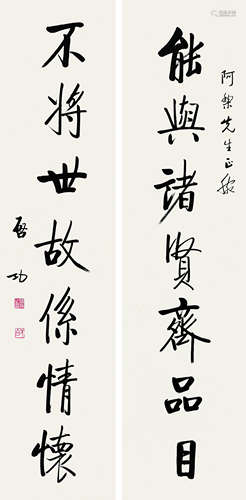 阿黎先生正发
能與諸賢齊品目
不將世故係情懷
啓功